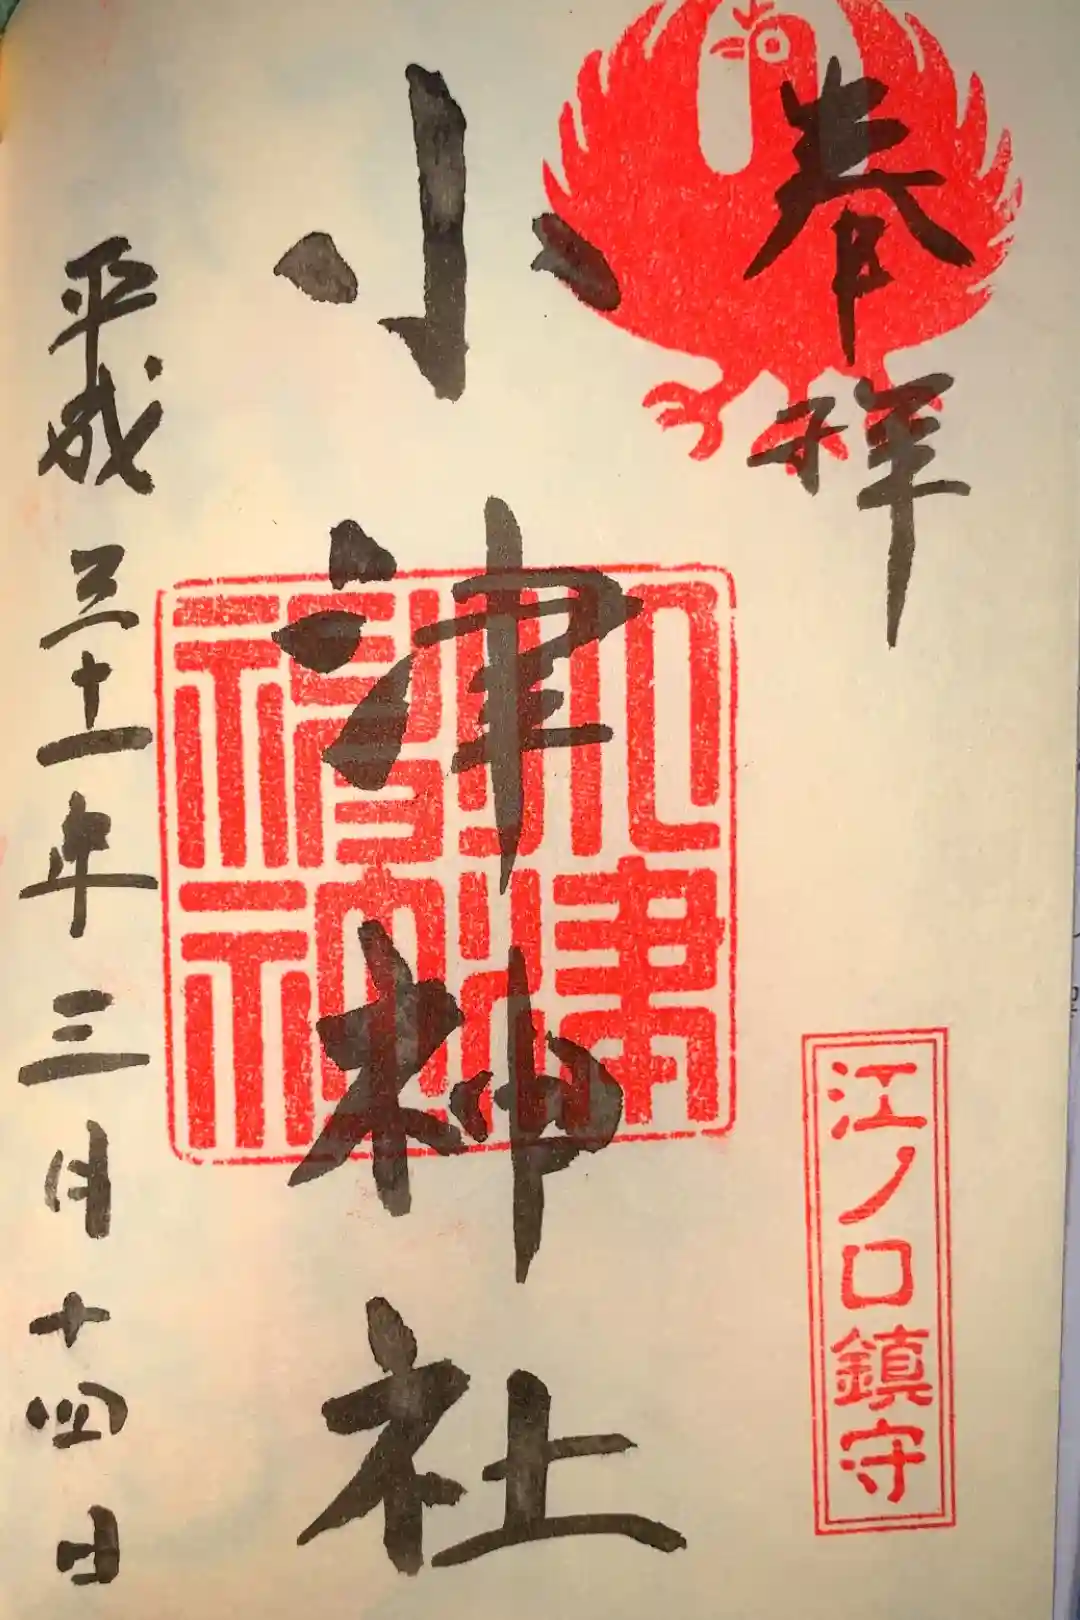 奉拝
江ノ口鎮守
小津神社
平成三十一年三月十四日